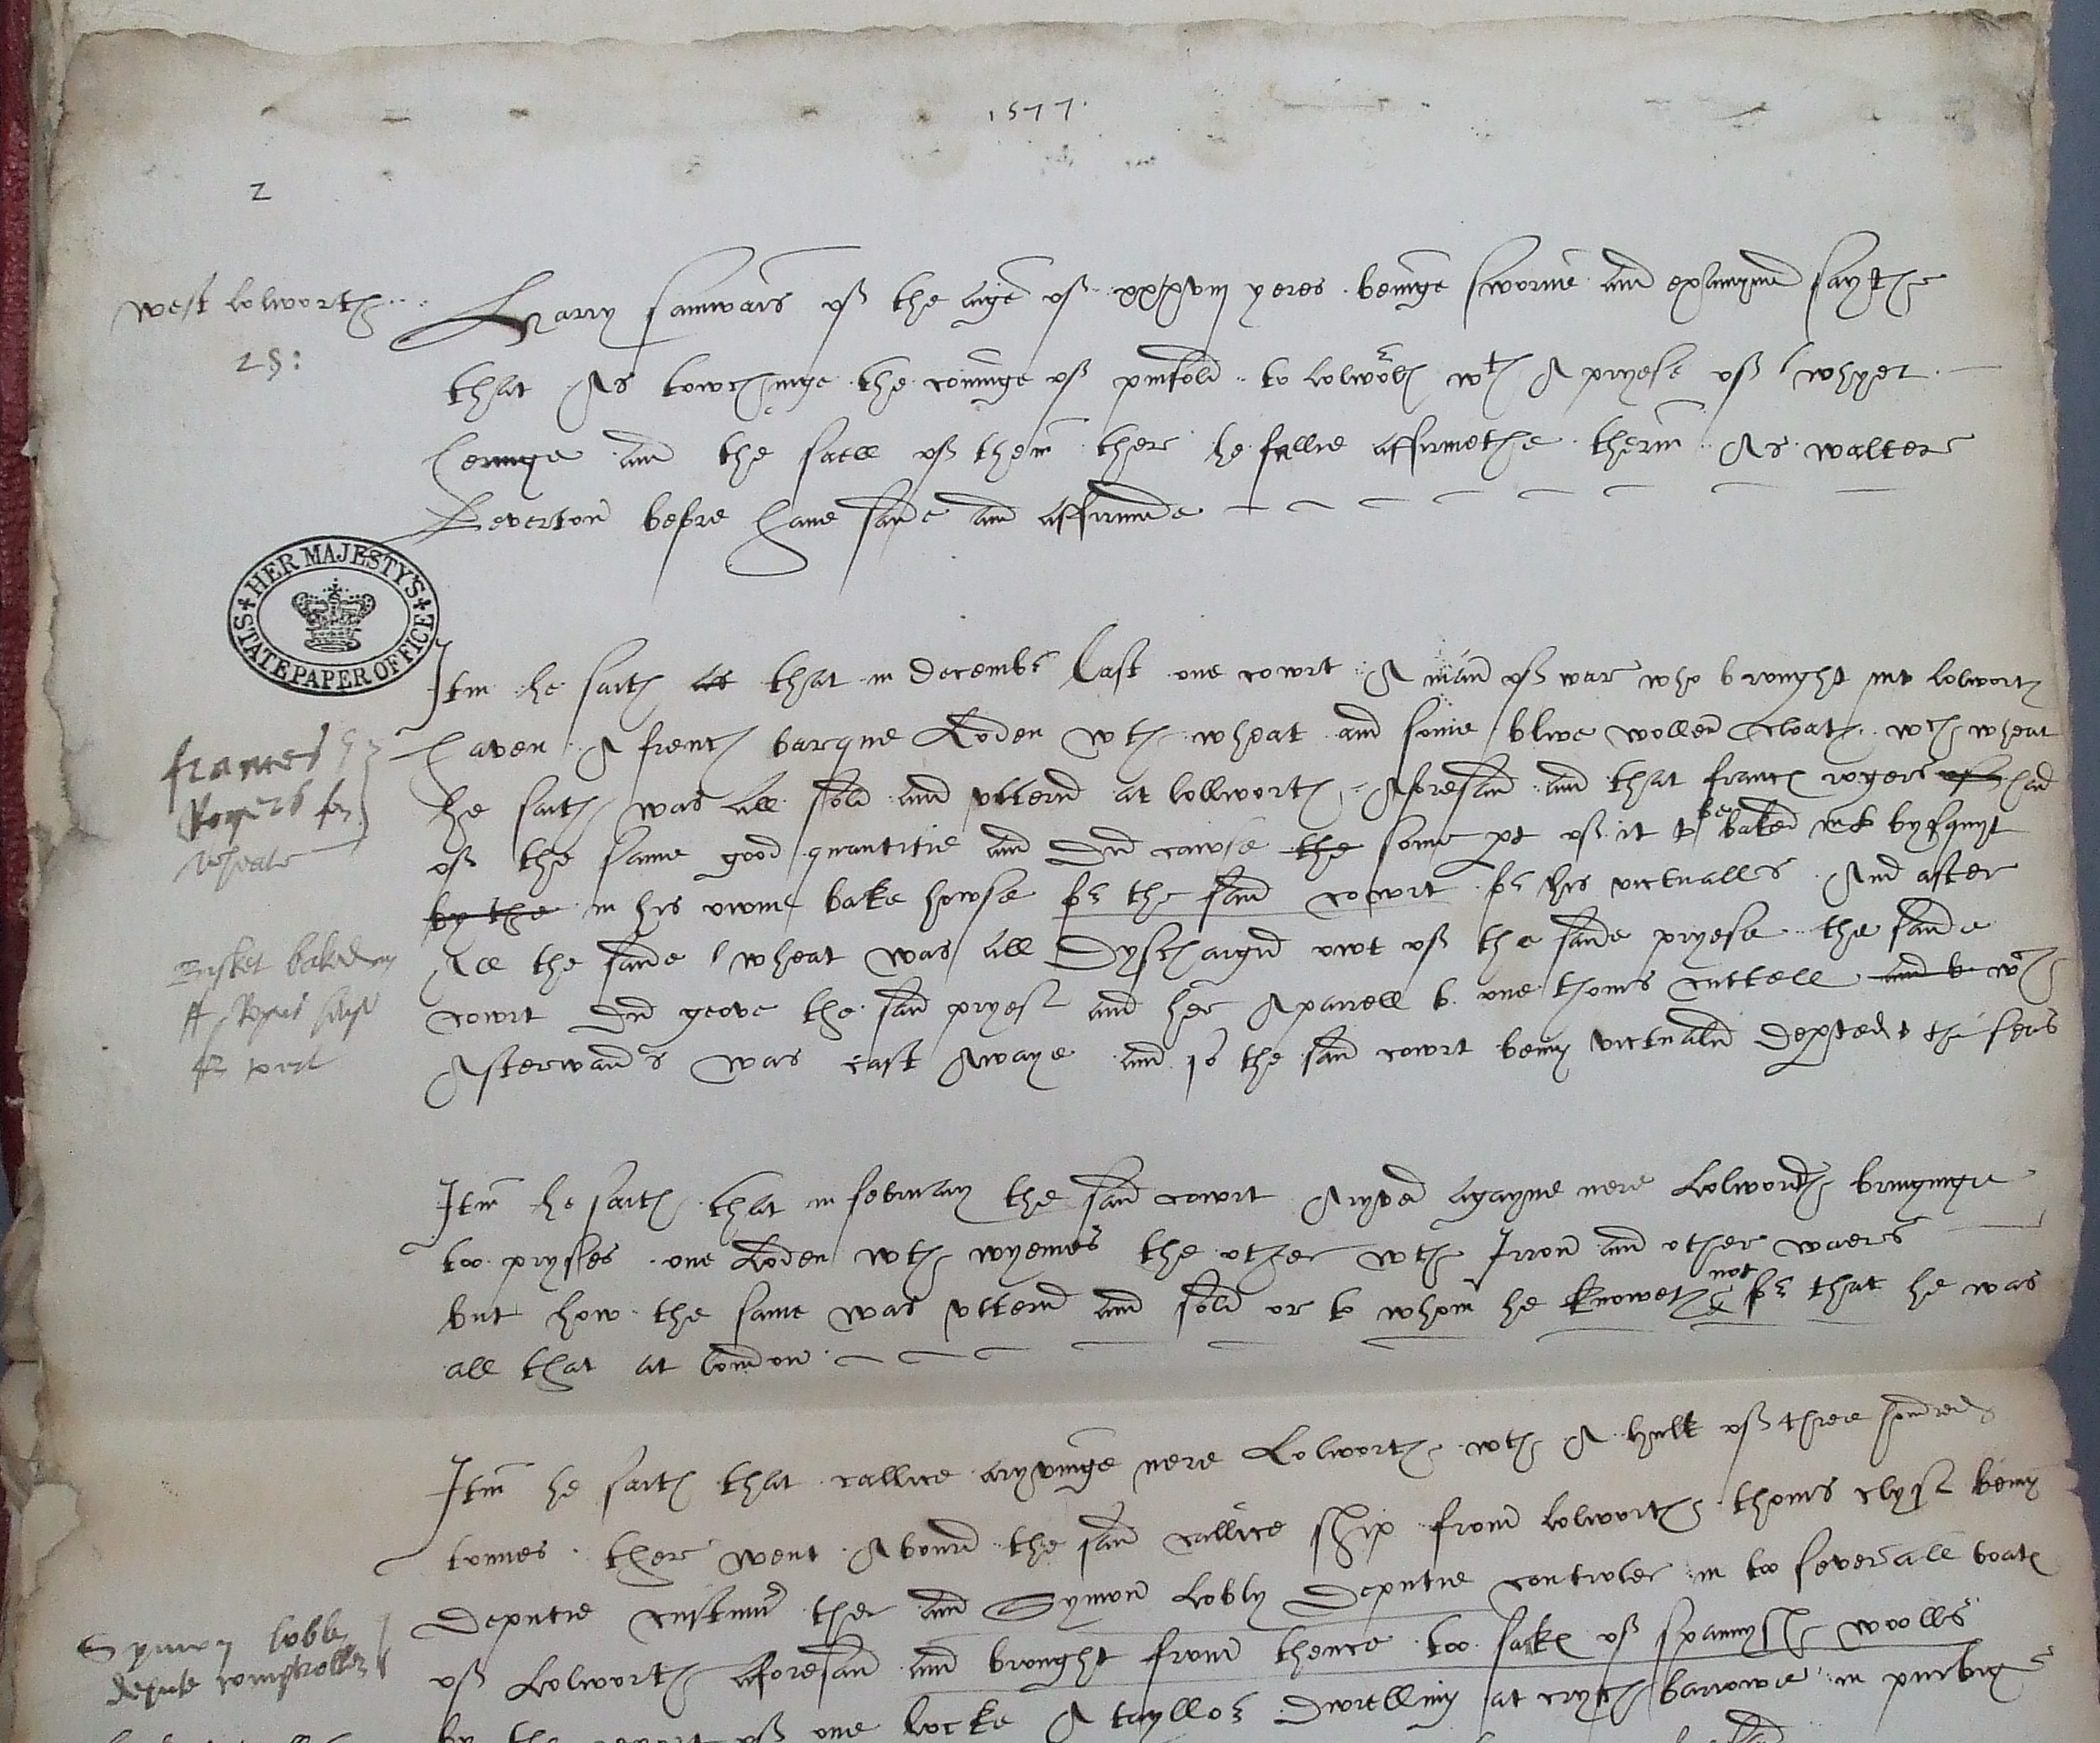 1577
2
west lolworth
25:
Harry samwais of the aige of xxxviij yeres beinge sworne and examyned saythe
that As towchinge the cominge of pinfold to lolworth wth A pryese of whyet
heringe and the saell of them ther he fullie affirmethe therin As walter
Beverton before have saide and affirmide
HER MAJESTY'S STATE PAPER OFFICE
Itm he saith that in decembr last one cowrt A man of war who brought into lolworth
haven A french barque Loden wth wheat and some blwe wollen cloath wch wheat
he saith was all sold and utterid at lollworth Aforesaid and that francs rogers had
of the same good quantitie and did cawse the some pt of it to be baked into bysquyt
by the in his owne bake howse for the said cowrt for his victualls And after
All the saide wheat was all dyschargid owt of the saide pryese the saide
cowrt did geove the said pryese and her Aparrell to one thoms cuttell and wch
Afterwards was cast Awaye and so the said cowrt being victualid depted to the seas
frances
Rogers for
wheate
Bisket baked in
ff Rogers howse
for cort
Itm he saith that in february the said cowrt Aryved agayne nere Lolworth bringinge
too pryses one Loden wth wyenes the other wth Irron and other waers
but how the same was utterid and sold or to whom he knoweth not for that he was
all that at london
Itm he saith that callice aryvinge nere Lolworth wth A hulk of three hondred
tonnes ther went Abourd the said callice ship from lolworth thoms clyse being
deputie custmr ther and Symon Lobby deputie controler in too severall boats
of Lolworth Aforesaid and brought from thence too sacks of spannysh woolls
by the report of one locke A tayllor dwelling at crych barrowe in purbig
Symon lobby
depute comptroller